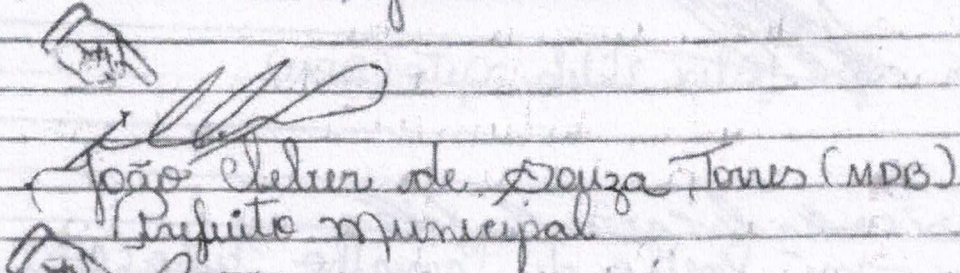 João Cleber de Souza Torres (MDB)
Prefeito Municipal